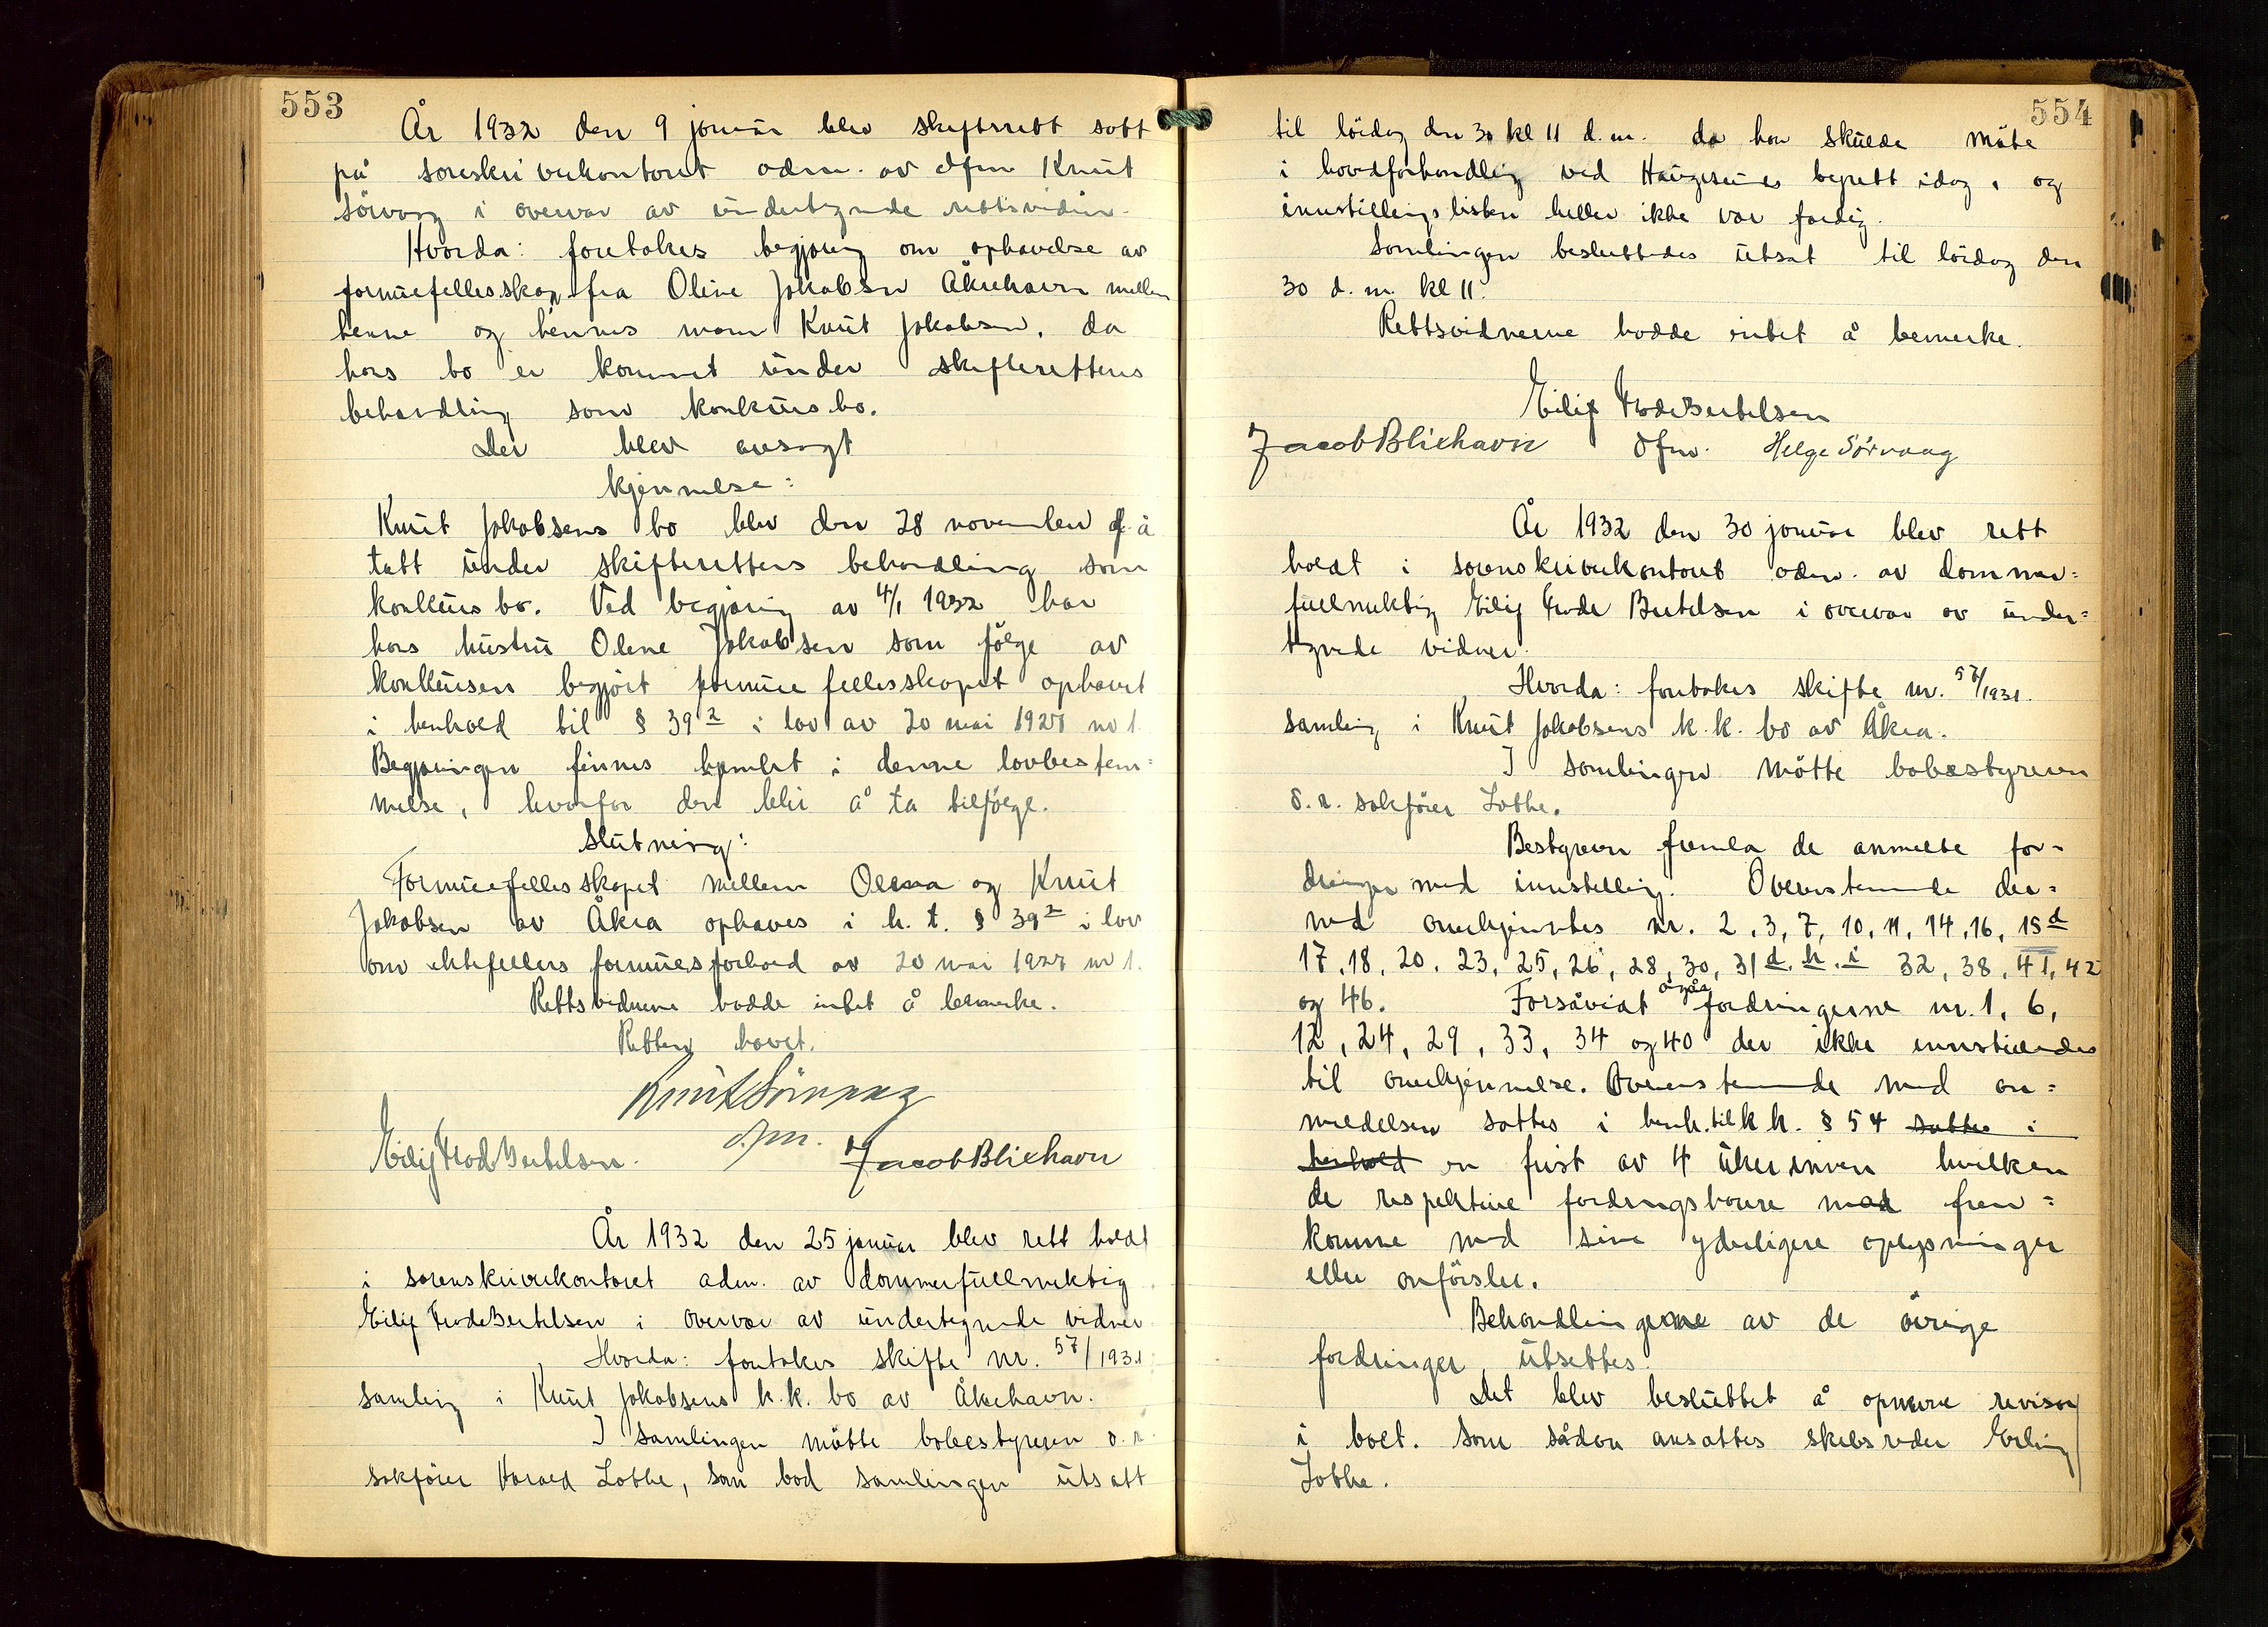 553
År 1932 den 9 januar blev skifterett satt
på sorenskriverkontoret adm. av dfm Knut
Sörvaag i overvær av undertegnede rettsvidner.
Hvorda: foretokes begjæring om ophævelse av
formuefellesskap fra Oline Jakobsen Åkrehavn mellem
henne og hennes mann Knut Jakobsen, da
hans bo er kommet under skifterettens
behandling som konkursbo.
Der blev avsagt
kjennelse:
Knut Jakobsens bo blev den 28 november f. å.
tatt under skifterettens behandling som
konkursbo. Ved begjæring av 4/1 1932 har
hans hustru Olene Jakobsen som fölge av
konkursen begjært formuefellesskapet ophævet
i henhold til § 39² i lov av 20 mai 1927 nr 1.
Begjæringen finnes hjemlet i denne lovbestem=
melse, hvorfor den blir å ta tilfölge.
Slutning:
Formuefellesskapet mellem Olena og Knut
Jakobsen av Åkra ophæves i h. t. § 39² i lov
om ektefellers formuesforhold av 20 mai 1927 nr 1.
Rettsvidnene hadde intet å bemerke.
Retten hævet.
Knut Sörvaag
dfm.
Eilif Frode Bertelsen. Jacob Blixhavn
År 1932 den 25 januar blev rett holdt
i sorenskriverkontoret adm. av dommerfullmektig
Eilif Frode Bertelsen i overvær av undertegnede vidner
Hvorda: foretokes skifte nr. 57/1931
samling i Knut Jakobsens k.k. bo av Åkrehavn.
I samlingen mötte bobestyreren o.r.
sakförer Harald Lothe, som bad samlingen utsatt
554
til lördag den 30 kl 11 d.m. da han skulde möte
i hovedforhandling ved Haugesunds byrett idag, og
innstillingslisten heller ikke var ferdig.
Samlingen besluttedes utsat til lördag den
30 d. m. kl 11.
Rettsvidnerne hadde intet å bemerke.
Eilif Frode Bertelsen
Jacob Blixhavn dfm. Helge Sörvaag
År 1932 den 30 januar blev rett
holdt i sorenskriverkontoret adm. av dommer=
fullmektig Eilif Frode Bertelsen i overvær av under=
tegnede vidner.
Hvorda: foretokes skifte nr. 57/1931.
samling i Knut Jakobsens k.k. bo av Åkra.
I samlingen mötte bobestyreren
o.r. sakförer Lothe.
Bestyreren fremla de anmeldte for-
dringer med innstilling. Overenstemmende der=
med anerkjentes nr. 2, 3, 7, 10, 11, 14, 16, 15 d
17, 18, 20, 23, 25, 26, 28, 30, 31 d. h. i 32, 38, 41, 42
og 46. Forsåvidt angår fordringerne nr. 1, 6,
12, 24, 29, 33, 34 og 40 der ikke innstilledes
til anerkjennelse. Overenstemmende med an=
meldelsen sattes i henh. til k.k. § 54 sattes i
henhold en frist av 4 uker innen hvilken
de respektive fordringshavere må frem=
komme med sine yderligere oplysninger
eller anförsler.
Behandlingerne av de övrige
fordringer utsettes.
Det blev besluttet å opnevne revisor
i boet. Som sådan ansattes skibsreder Erling
Lothe.